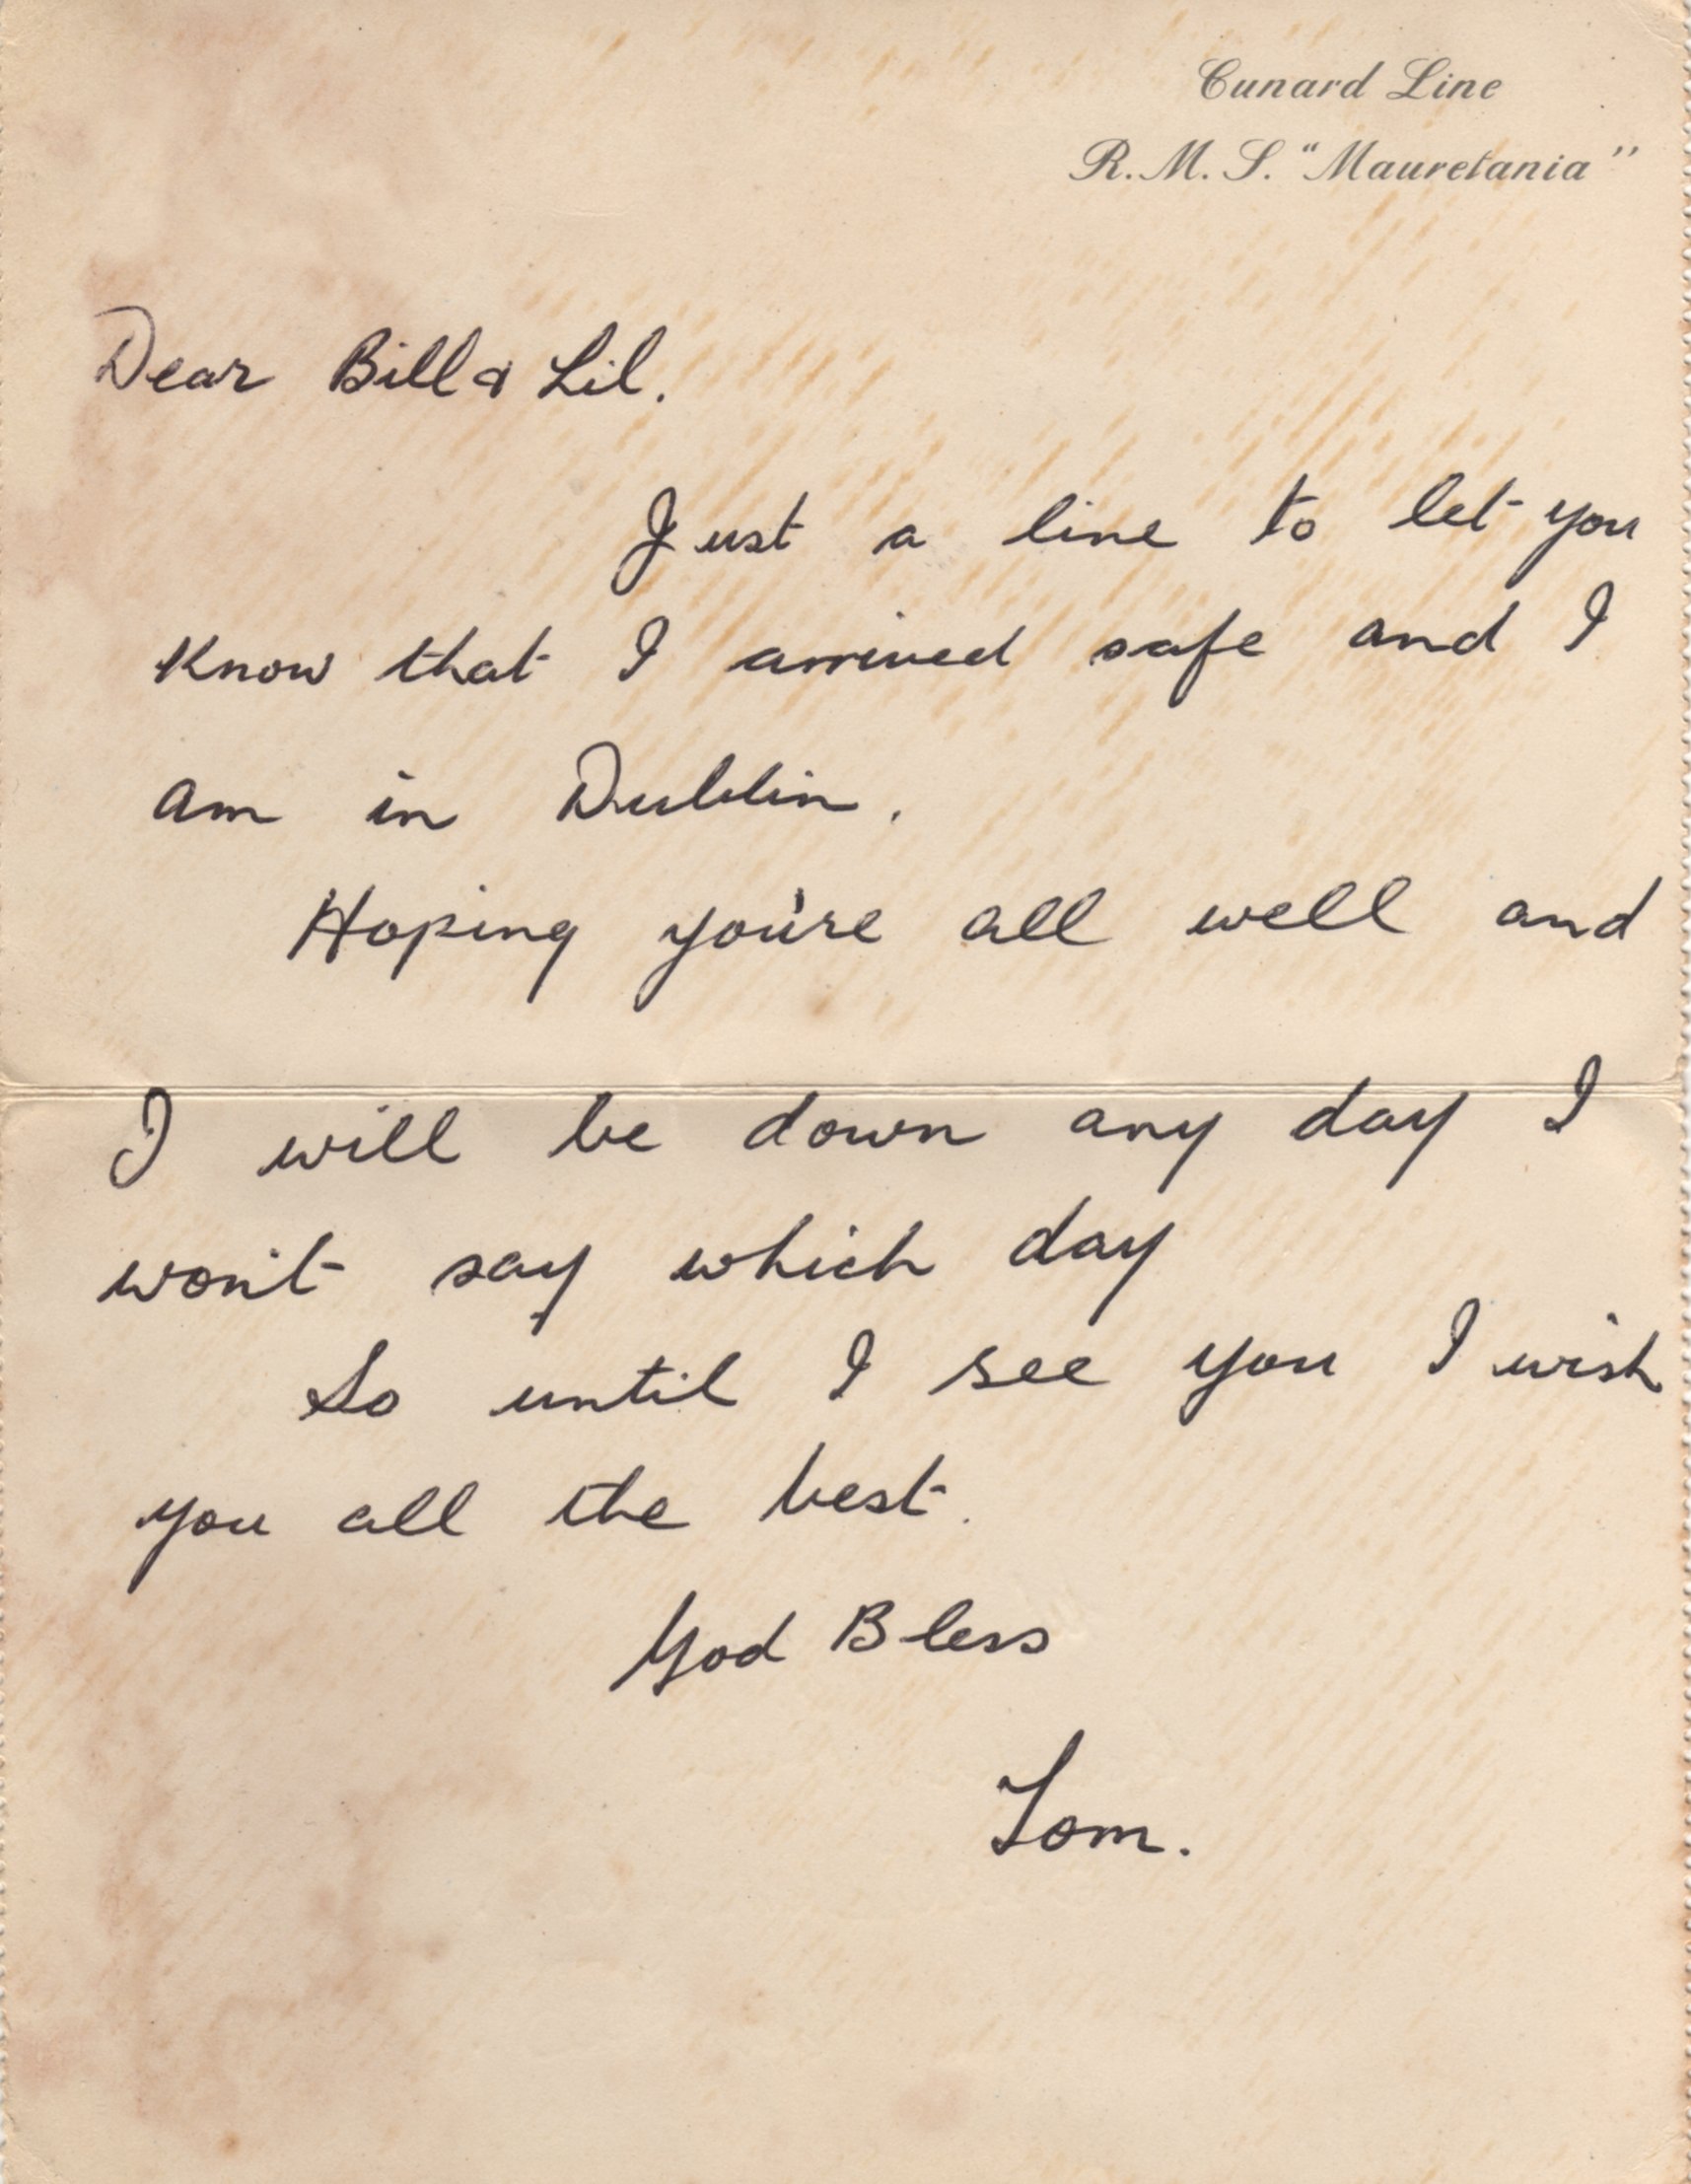 Cunard Line
R.M.S. "Mauretania"
Dear Bill & Lil.
Just a line to let you
know that I arrived safe and I
am in Dublin.
Hoping you're all well and
I will be down any day I
won't say which day
So until I see you I wish
you all the best.
God Bless
Tom.